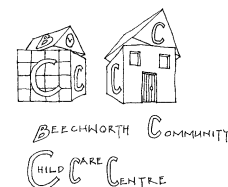 B C
C C C
Beechworth Community
Child Care Centre